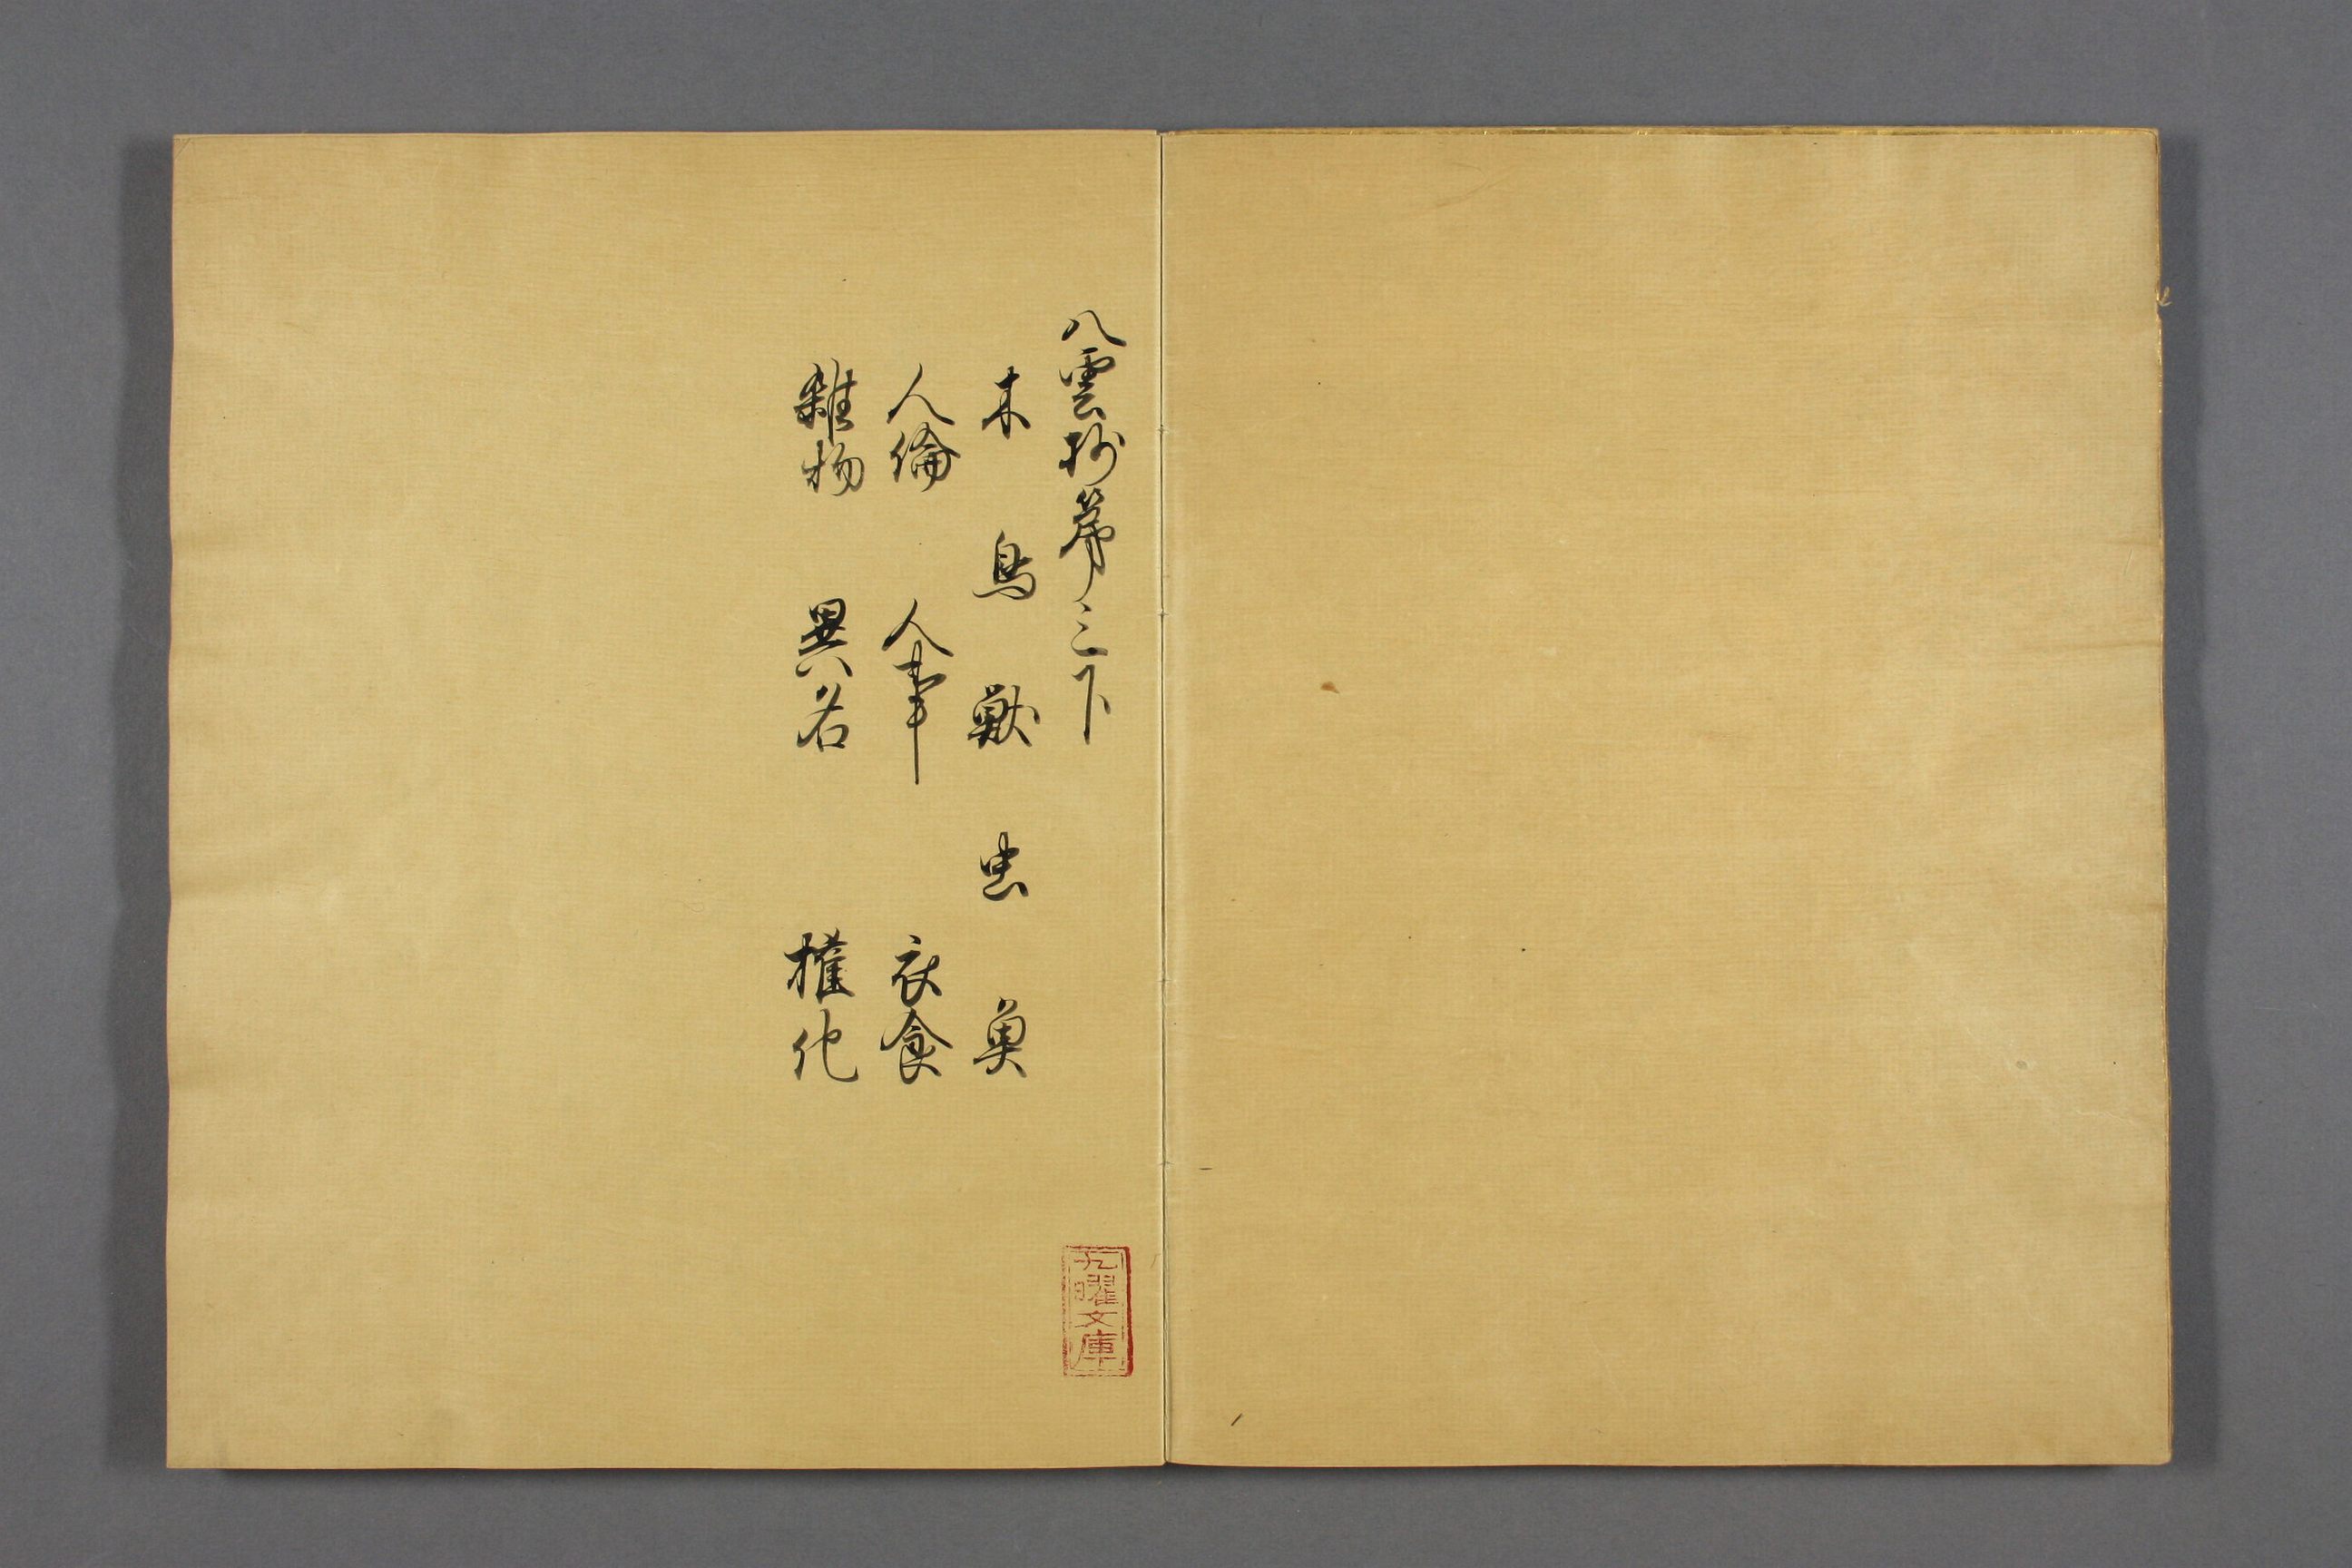 八雲抄第三下
木 鳥 獣 虫 魚
人倫 人事 衣食
雑物 異名 権化
九曜文庫